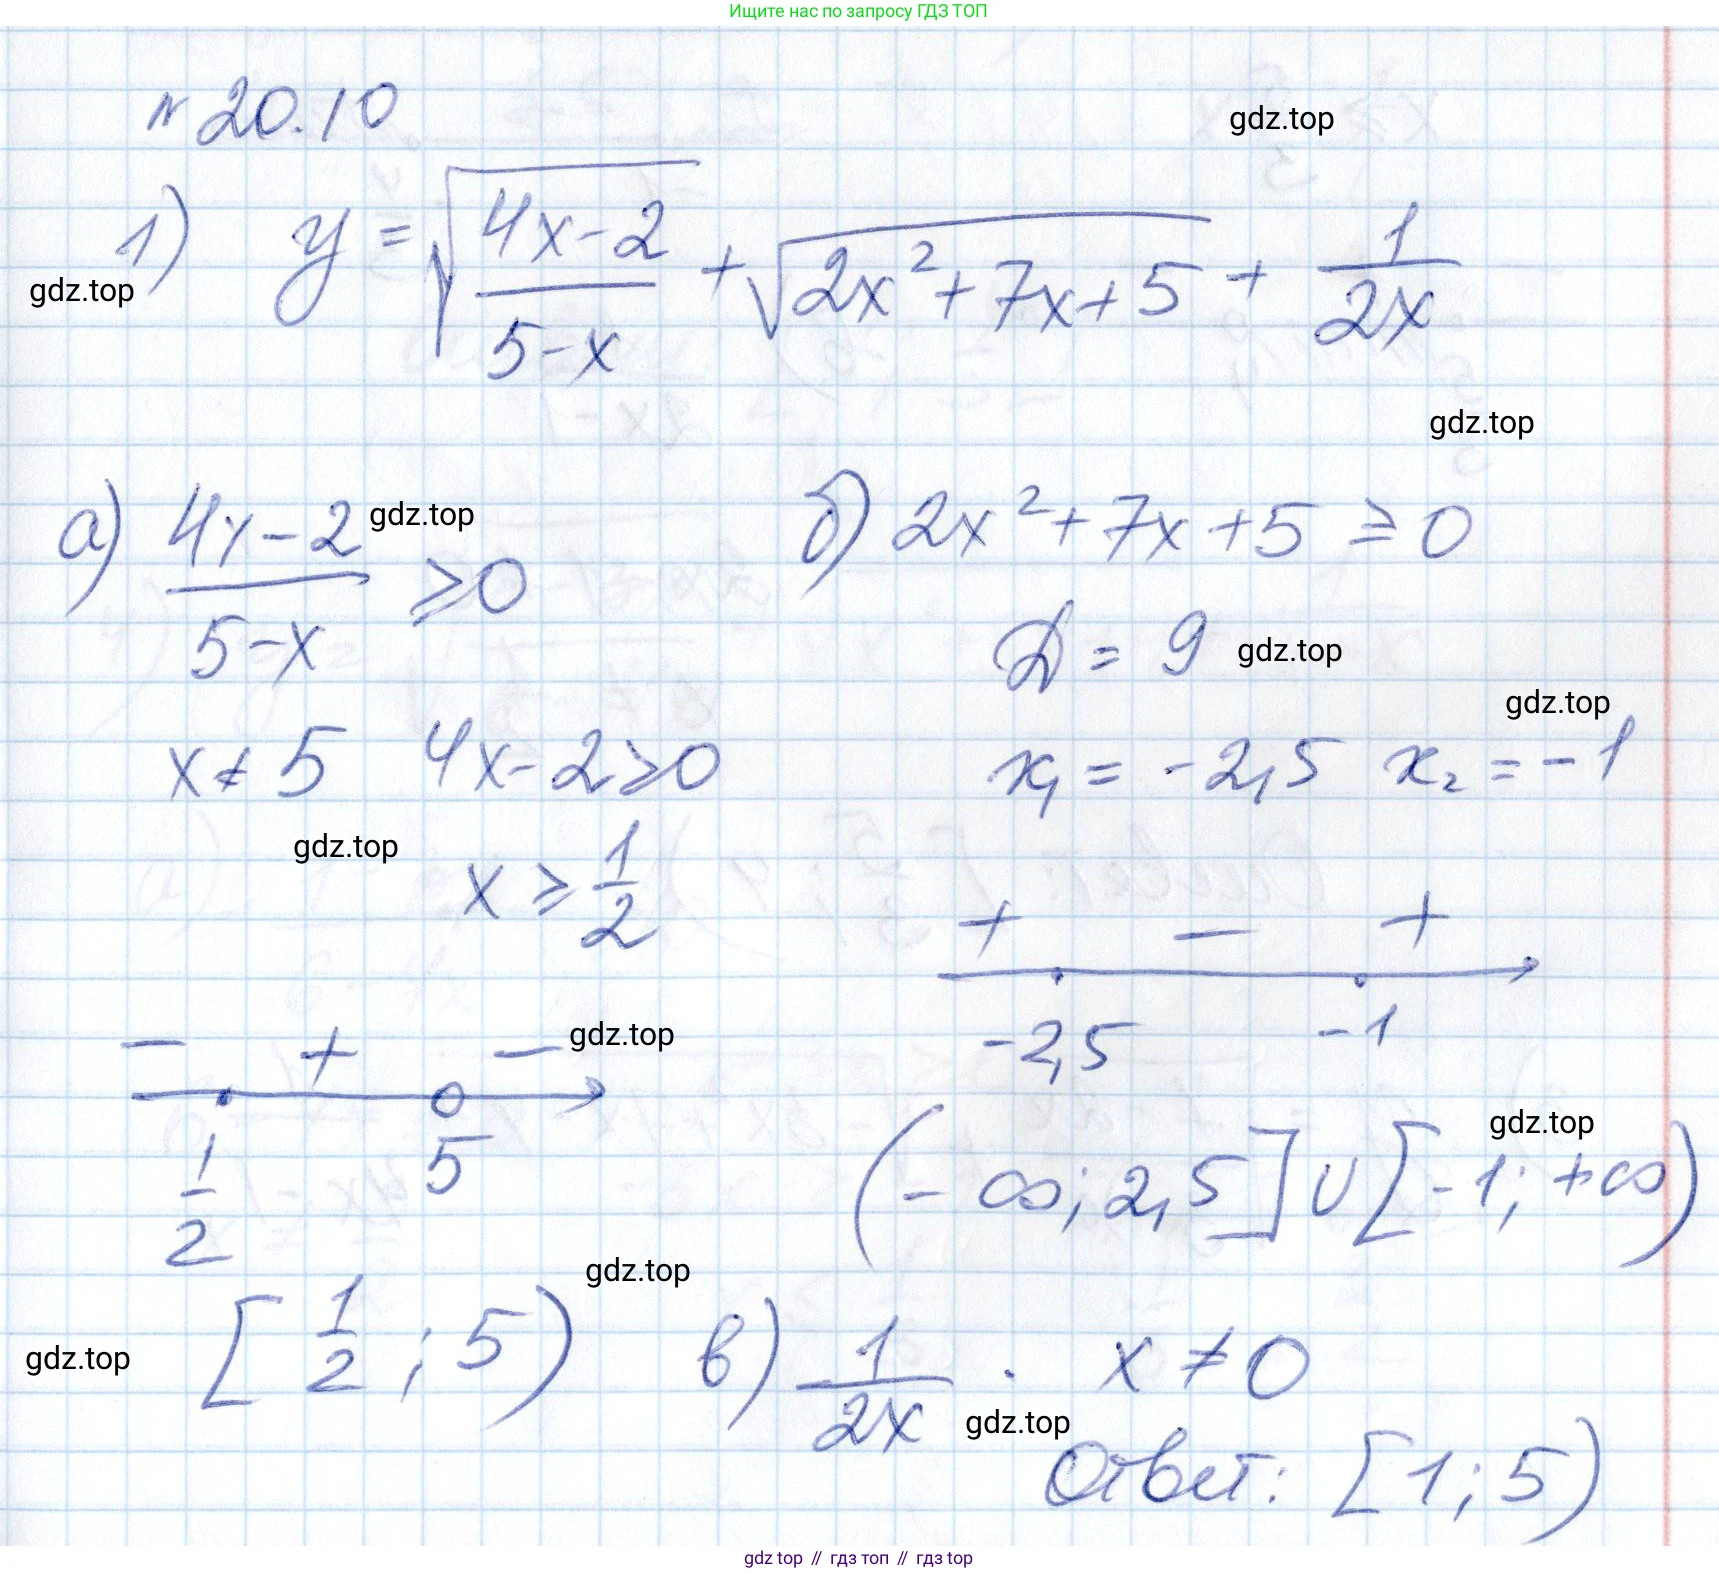 Ищите нас по запросу ГДЗ ТОП
№ 20.10
gdz.top
1) y = √((4x-2)/(5-x)) + √(2x² + 7x + 5) + 1/(2x)
gdz.top
gdz.top
а) (4x-2)/(5-x) ⩾ 0
gdz.top
б) 2x² + 7x + 5 ⩾ 0
D = 9
gdz.top
gdz.top
x ≠ 5 4x-2 ⩾ 0
x₁ = -2,5 x₂ = -1
gdz.top
x ⩾ 1/2
+ - +
-2,5 -1
- + -
gdz.top
1/2 5
gdz.top
(-∞; 2,5] ∪ [-1; +∞)
gdz.top
gdz.top
[1/2; 5)
в) 1/(2x) . x ≠ 0
gdz.top
Ответ: [1; 5)
gdz top // гдз топ // gdz top